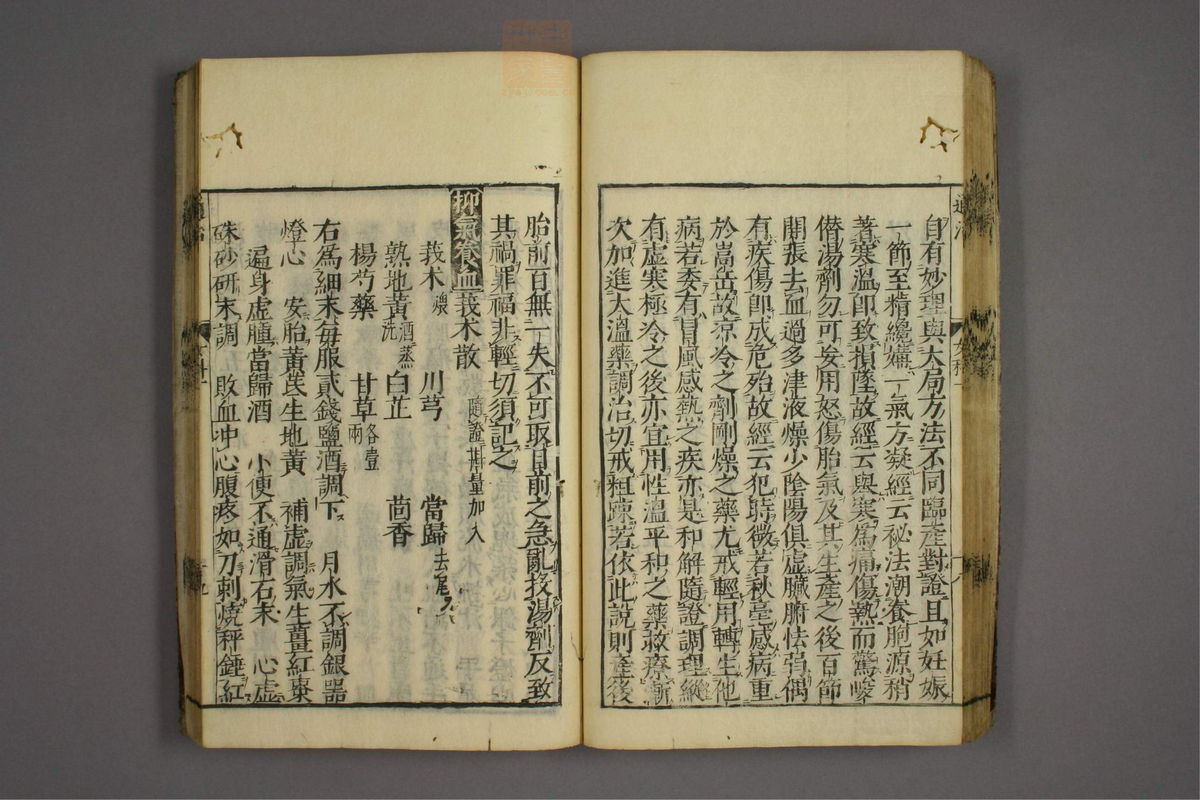 自有妙理與大局方法不同臨產對證且如妊娠
一節至精纔媾一氣方凝經云秘法潮養胞源稍
著寒溫卽致損墜故經云與寒為痛傷熱而驚峻
僭湯劑勿可妄用怒傷胎氣及其生產之後百節
開張去血過多津液燥少陰陽俱虛臟腑怯弱偶
有疾傷卽成危殆故經云犯時微若秋毫感病重
於嵩岳故凉冷之劑剛燥之藥尤戒輕用轉生他
病若委有冒風感熱之疾亦是和解隨證調理縱
有虛寒極冷之後亦宜用性溫平和之藥救療漸
次加進大溫藥調治切戒粗踈若依此說則產後
胎前百無一失不可取目前之急亂投湯劑反致
其禍罪福非輕切須記之
抑氣養血莪朮散 隨證斟量加入
莪朮 川芎 當歸去尾
熟地黃酒蒸洗 白芷 茴香
楊芍藥 甘草各壹兩
右為細末每服貳錢鹽酒調下 月水不調銀器
燈心 安胎黃芪生地黃 補虛調氣生薑紅棗
遍身虛腫當歸酒 小便不通滑石末 心虛
硃砂研末調 敗血冲心腹疼如刀刺燒秤錘紅
通治
女科一
十八